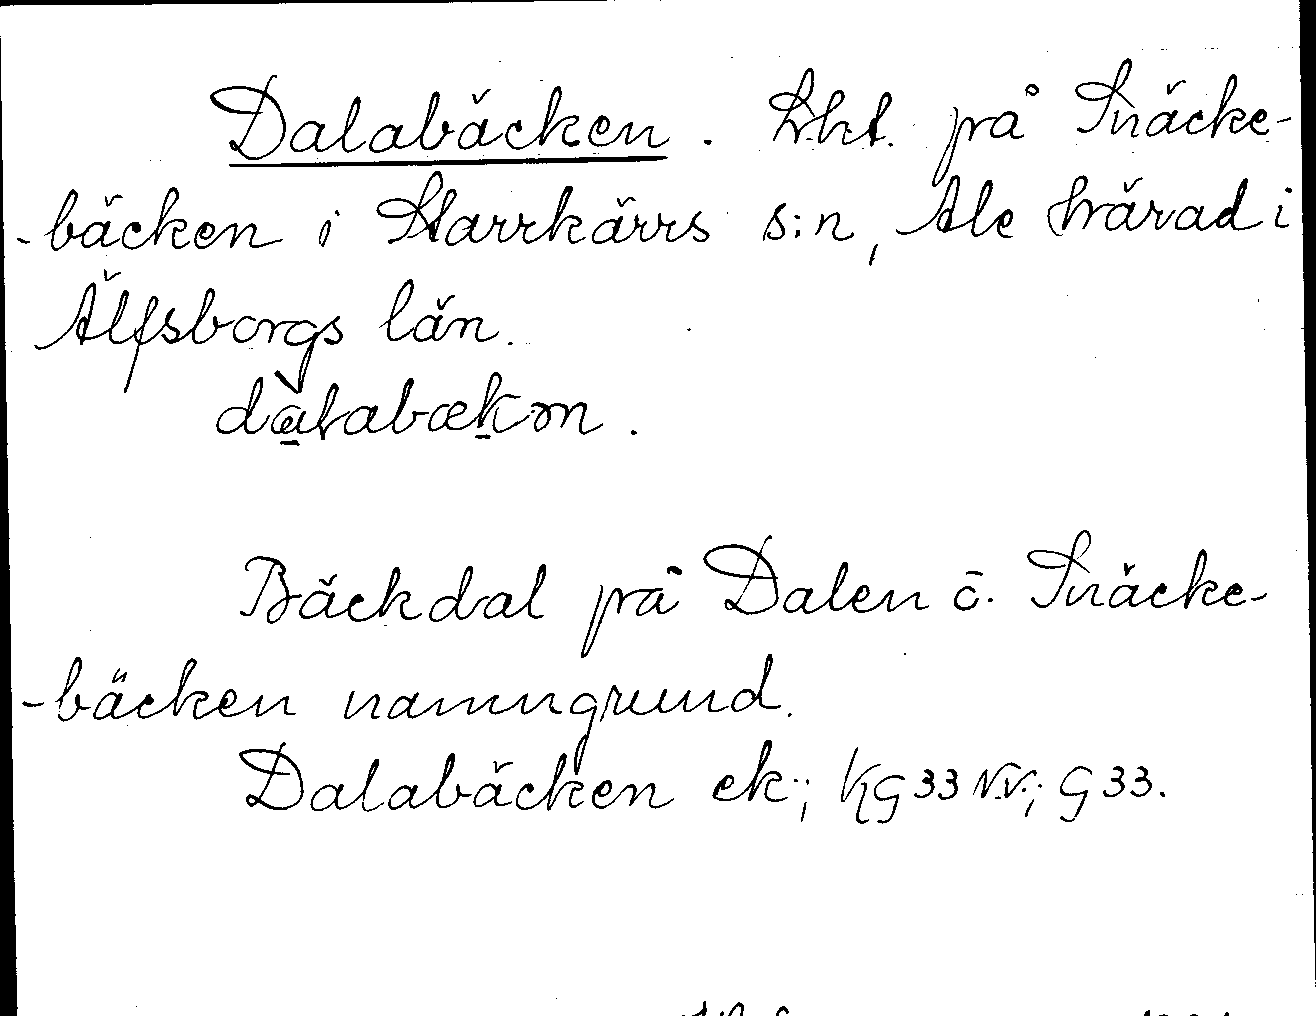 Dalabäcken. Lht. på Snäcke-
-bäcken i Starrkärrs s:n, Ale härad i
Älfsborgs län.
dàlabækən.
Bäckdal på Dalen o. Snäcke-
-bäcken namngrund.
Dalabäcken ek.; KG 33 N.V.; G 33.